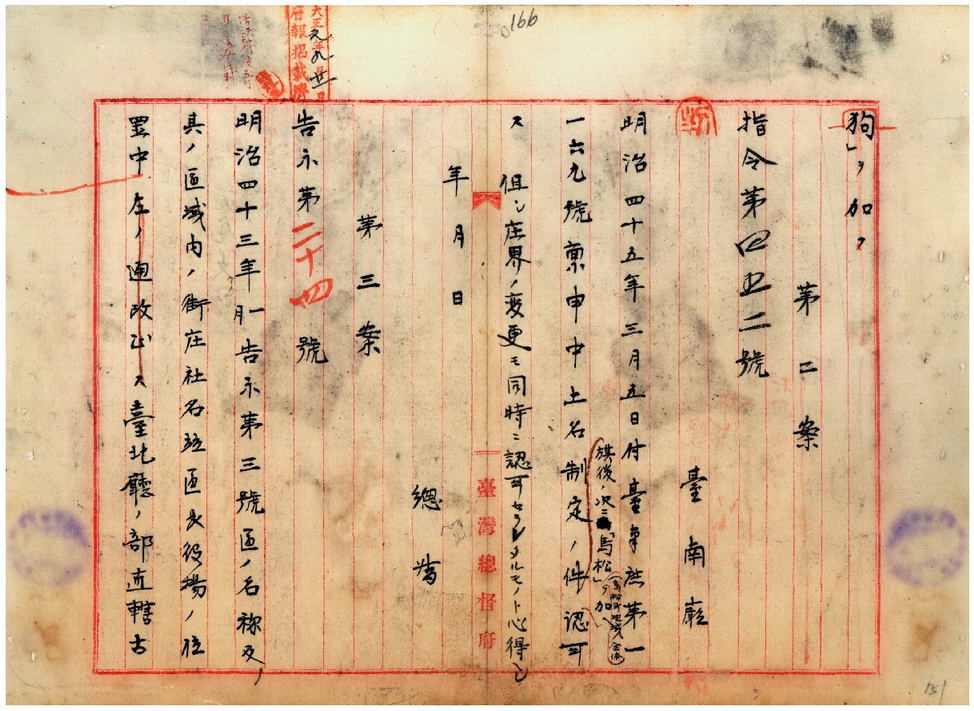 166
大正元年九月廿日
府報掲載濟
狗」ヲ加フ
第二案
指令第四五二號
臺南廳
明治四十五年三月五日付臺南庶第一
旗後ノ次ニ「馬松」ヲ加ヘ
一六九號稟申中土名制定ノ件認可
ス 但シ庄界ノ変更モ同時ニ認可セラレタルモノト心得ヘシ
年月日
總督
臺灣總督府
第三案
告示第二十四號
明治四十三年一月告示第三號區ノ名称及
其ノ區域内ノ街庄社名竝區長役場ノ位
置中左ノ通改正ス臺北廳ノ部直轄古
151